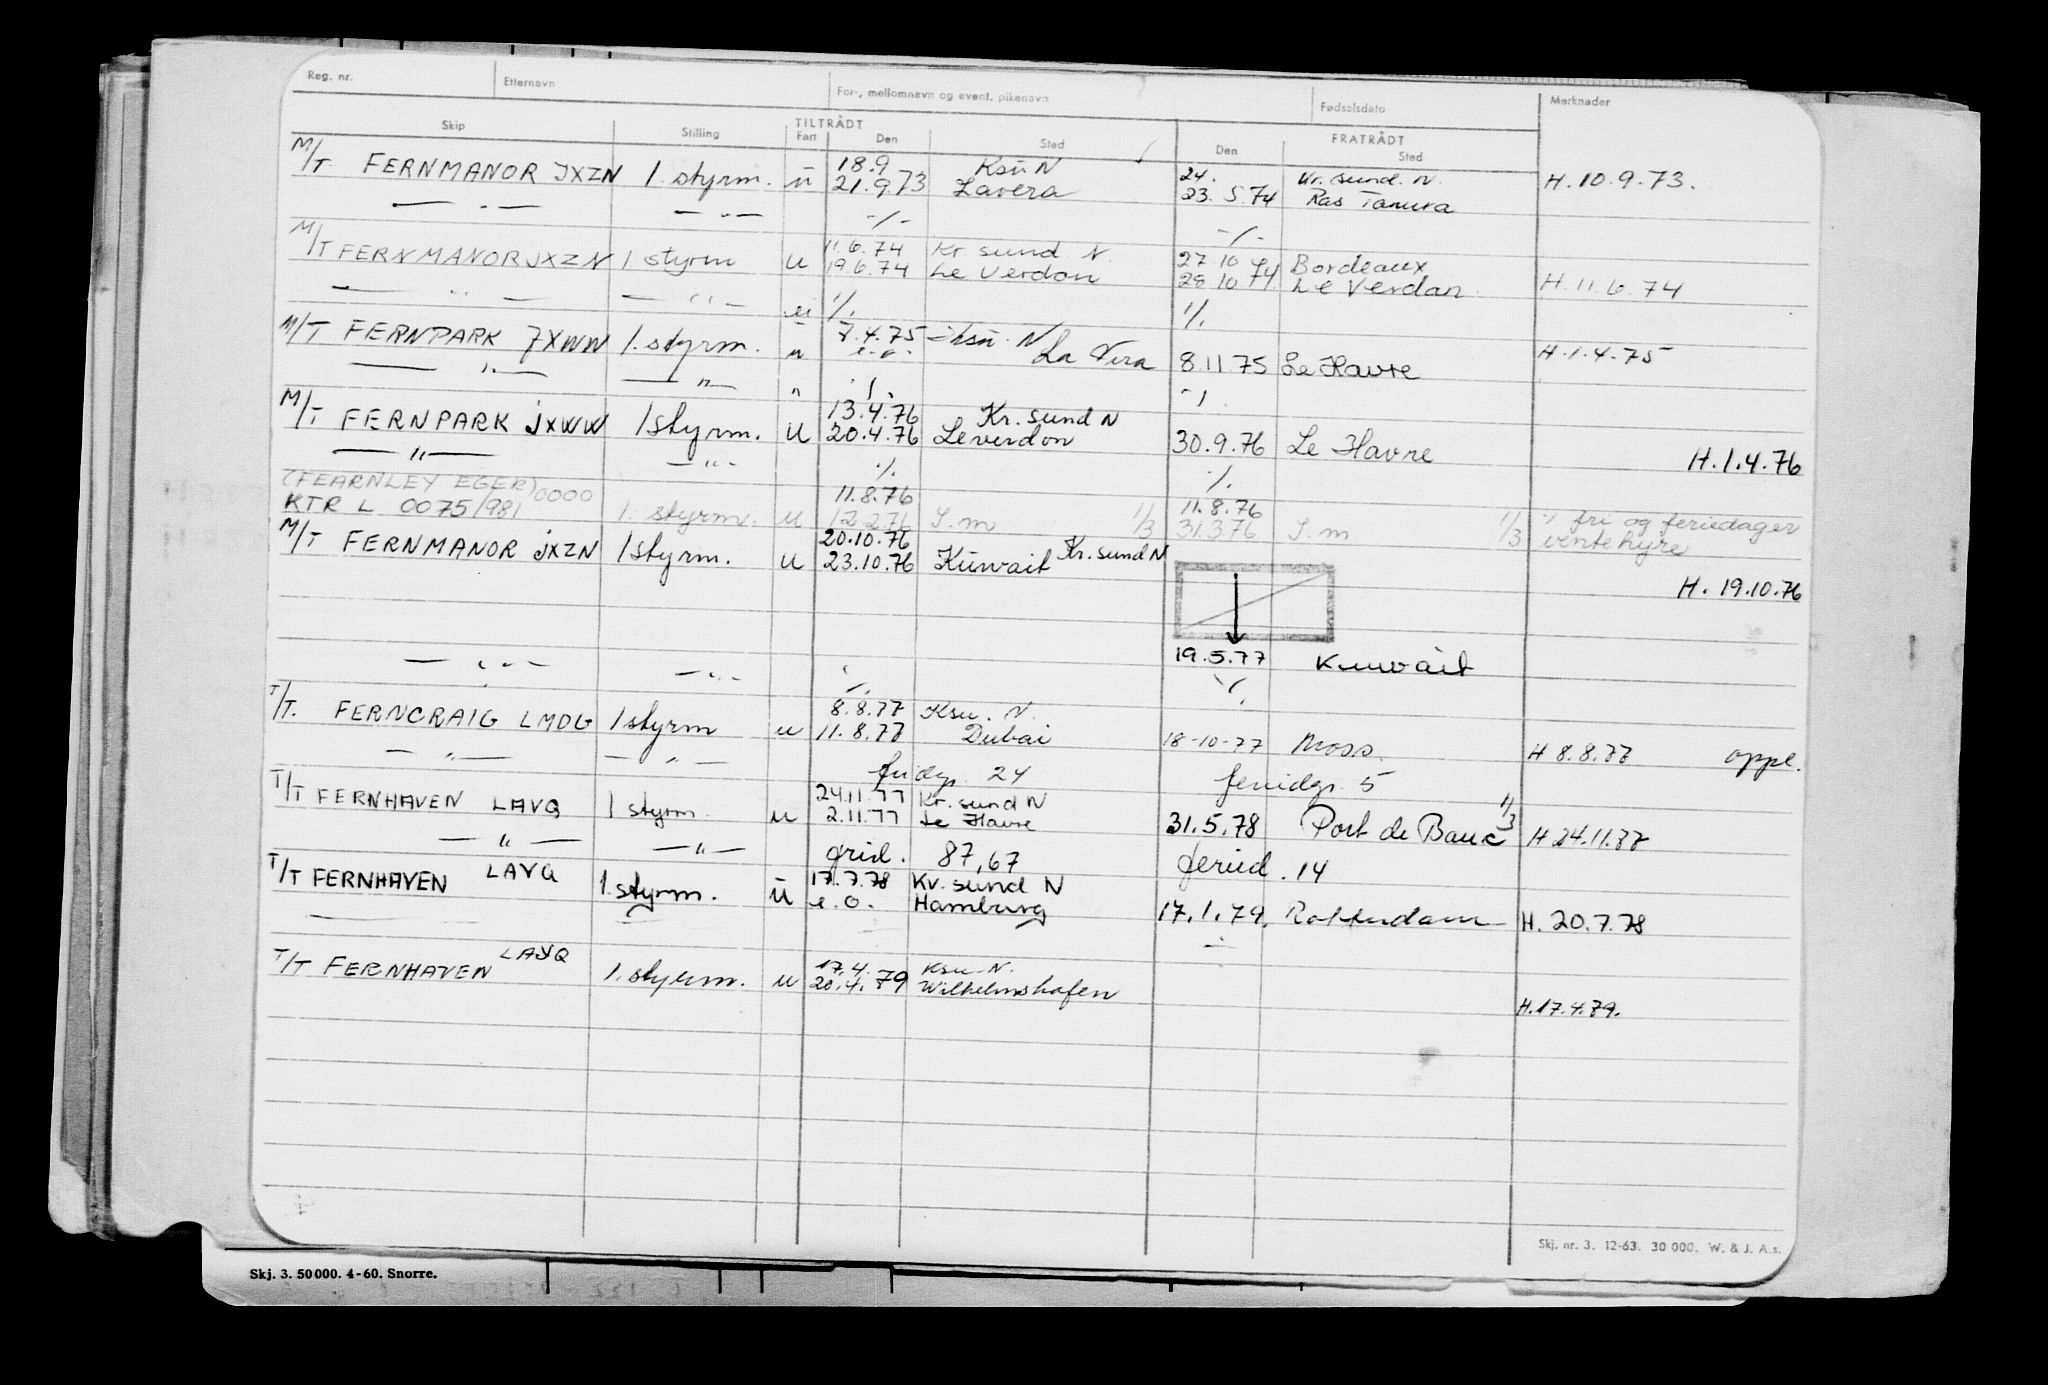 Reg. nr. Etternavn For-, mellomnavn og event. pikenavn Fødselsdato Merknader
TILTRÅDT FRATRÅDT
Skip Stilling Fart Den Sted Den Sted
18.9 Ksu N 24. Kr. sund. N.
M/T FERNMANOR JXZN 1. styrm. u 21.9.73 Lavera 23.5.74 Ras Tanura H. 10.9.73.
— " — — " — -/- -/-
11.6.74 Kr sund N. 27.10.74 Bordeaux
M/T FERNMANOR JXZN 1 styrm u 19.6.74 Le Verdon 28.10.74 Le Verdan H. 11.6.74
— " — — " — -/. -/.
M/T FERNPARK JXWW 1. styrm. u 7.4.75 Ksu. N H. 1.4.75
— " — — " — e.o. La Vera 8.11.75 Le Havre
13.4.76 Kr. sund N
M/T FERNPARK JXWW 1 styrm. u 20.4.76 Leverdon 30.9.76 Le Havre H. 1.4.76
— " — — " — -/. -/.
(FEARNLEY EGER) 0000 11.8.76 11.8.76
KTR L 0075/981 1. styrm. u 12.2.76 S.m 1/3 31.3.76 S.m 1/3 fri og feriedager
ventehyre
20.10.76 Kr. sund N
M/T FERNMANOR JXZN 1 styrm. u 23.10.76 Kuwait H. 19.10.76
— " — — " — 19.5.77 Kuwait
8.8.77 Ksu. N.
T/T. FERNCRAIG LMDG 1 styrm u 11.8.77 Dubai 18-10-77 Moss. H 8.8.77 oppl.
— " — — " — fridgr. 24 feriedgr. 5
24.11.77 Kr. sund N
T/T FERNHAVEN LAVQ 1 styrm. u 2.11.77 Le Havre 31.5.78 Port de Bauc 1/3 H 24.11.77
— " — — " — frid. 87,67 feried. 14
17.7.78 Kr. sund N
T/T FERNHAVEN LAVQ 1. styrm. u e.o. Hamburg 17.1.79. Rotterdam H. 20.7.78
17.4. Ksu N.
T/T FERNHAVEN LAVQ 1. styrm. u 20.4.79 Wilhelmshafen
H. 17.4.79.
Skj. nr. 3. 12-63. 30 000. W. & J. A.s.
Skj. 3. 50 000. 4-60. Snorre.